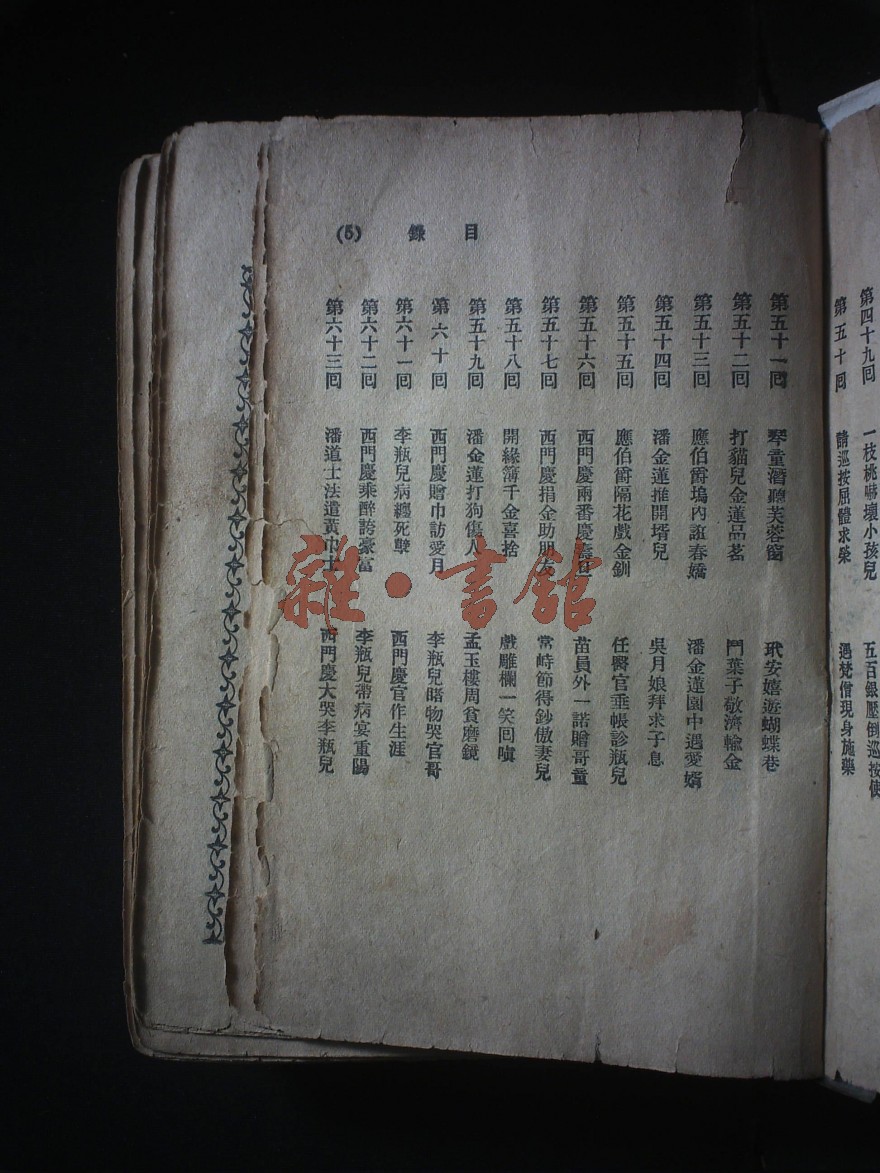 第四十九回 一枝桃嚇壞小孩兒 五百銀壓倒巡按使
第五十回 請巡按屈體求榮 遇梵僧現身施藥
目錄 (5)
第五十一回 琴童潛聽芙蓉窗 玳安嬉遊蝴蝶巷
第五十二回 打貓兒金蓮品茗 鬥葉子敬濟輸金
第五十三回 應伯爵塢內誆春嬌 潘金蓮園中遇愛婿
第五十四回 潘金蓮推開壻兒 吳月娘拜求子息
第五十五回 應伯爵隔花戲金釧 任醫官垂帳診瓶兒
第五十六回 西門慶兩番慶壽旦 苗員外一諾贈哥童
第五十七回 西門慶捐金助朋友 常峙節得鈔傲妻兒
第五十八回 開緣簿千金喜捨 戲雕欄一笑回嗔
第五十九回 潘金蓮打狗傷人 孟玉樓周貧磨鏡
第六十回 西門慶贈巾訪愛月 李瓶兒睹物哭官哥
第六十一回 李瓶兒病纏死孽 西門慶官作生涯
第六十二回 西門慶乘醉誇豪富 李瓶兒帶病宴重陽
第六十三回 潘道士法遣黃巾士 西門慶大哭李瓶兒
雜·書館